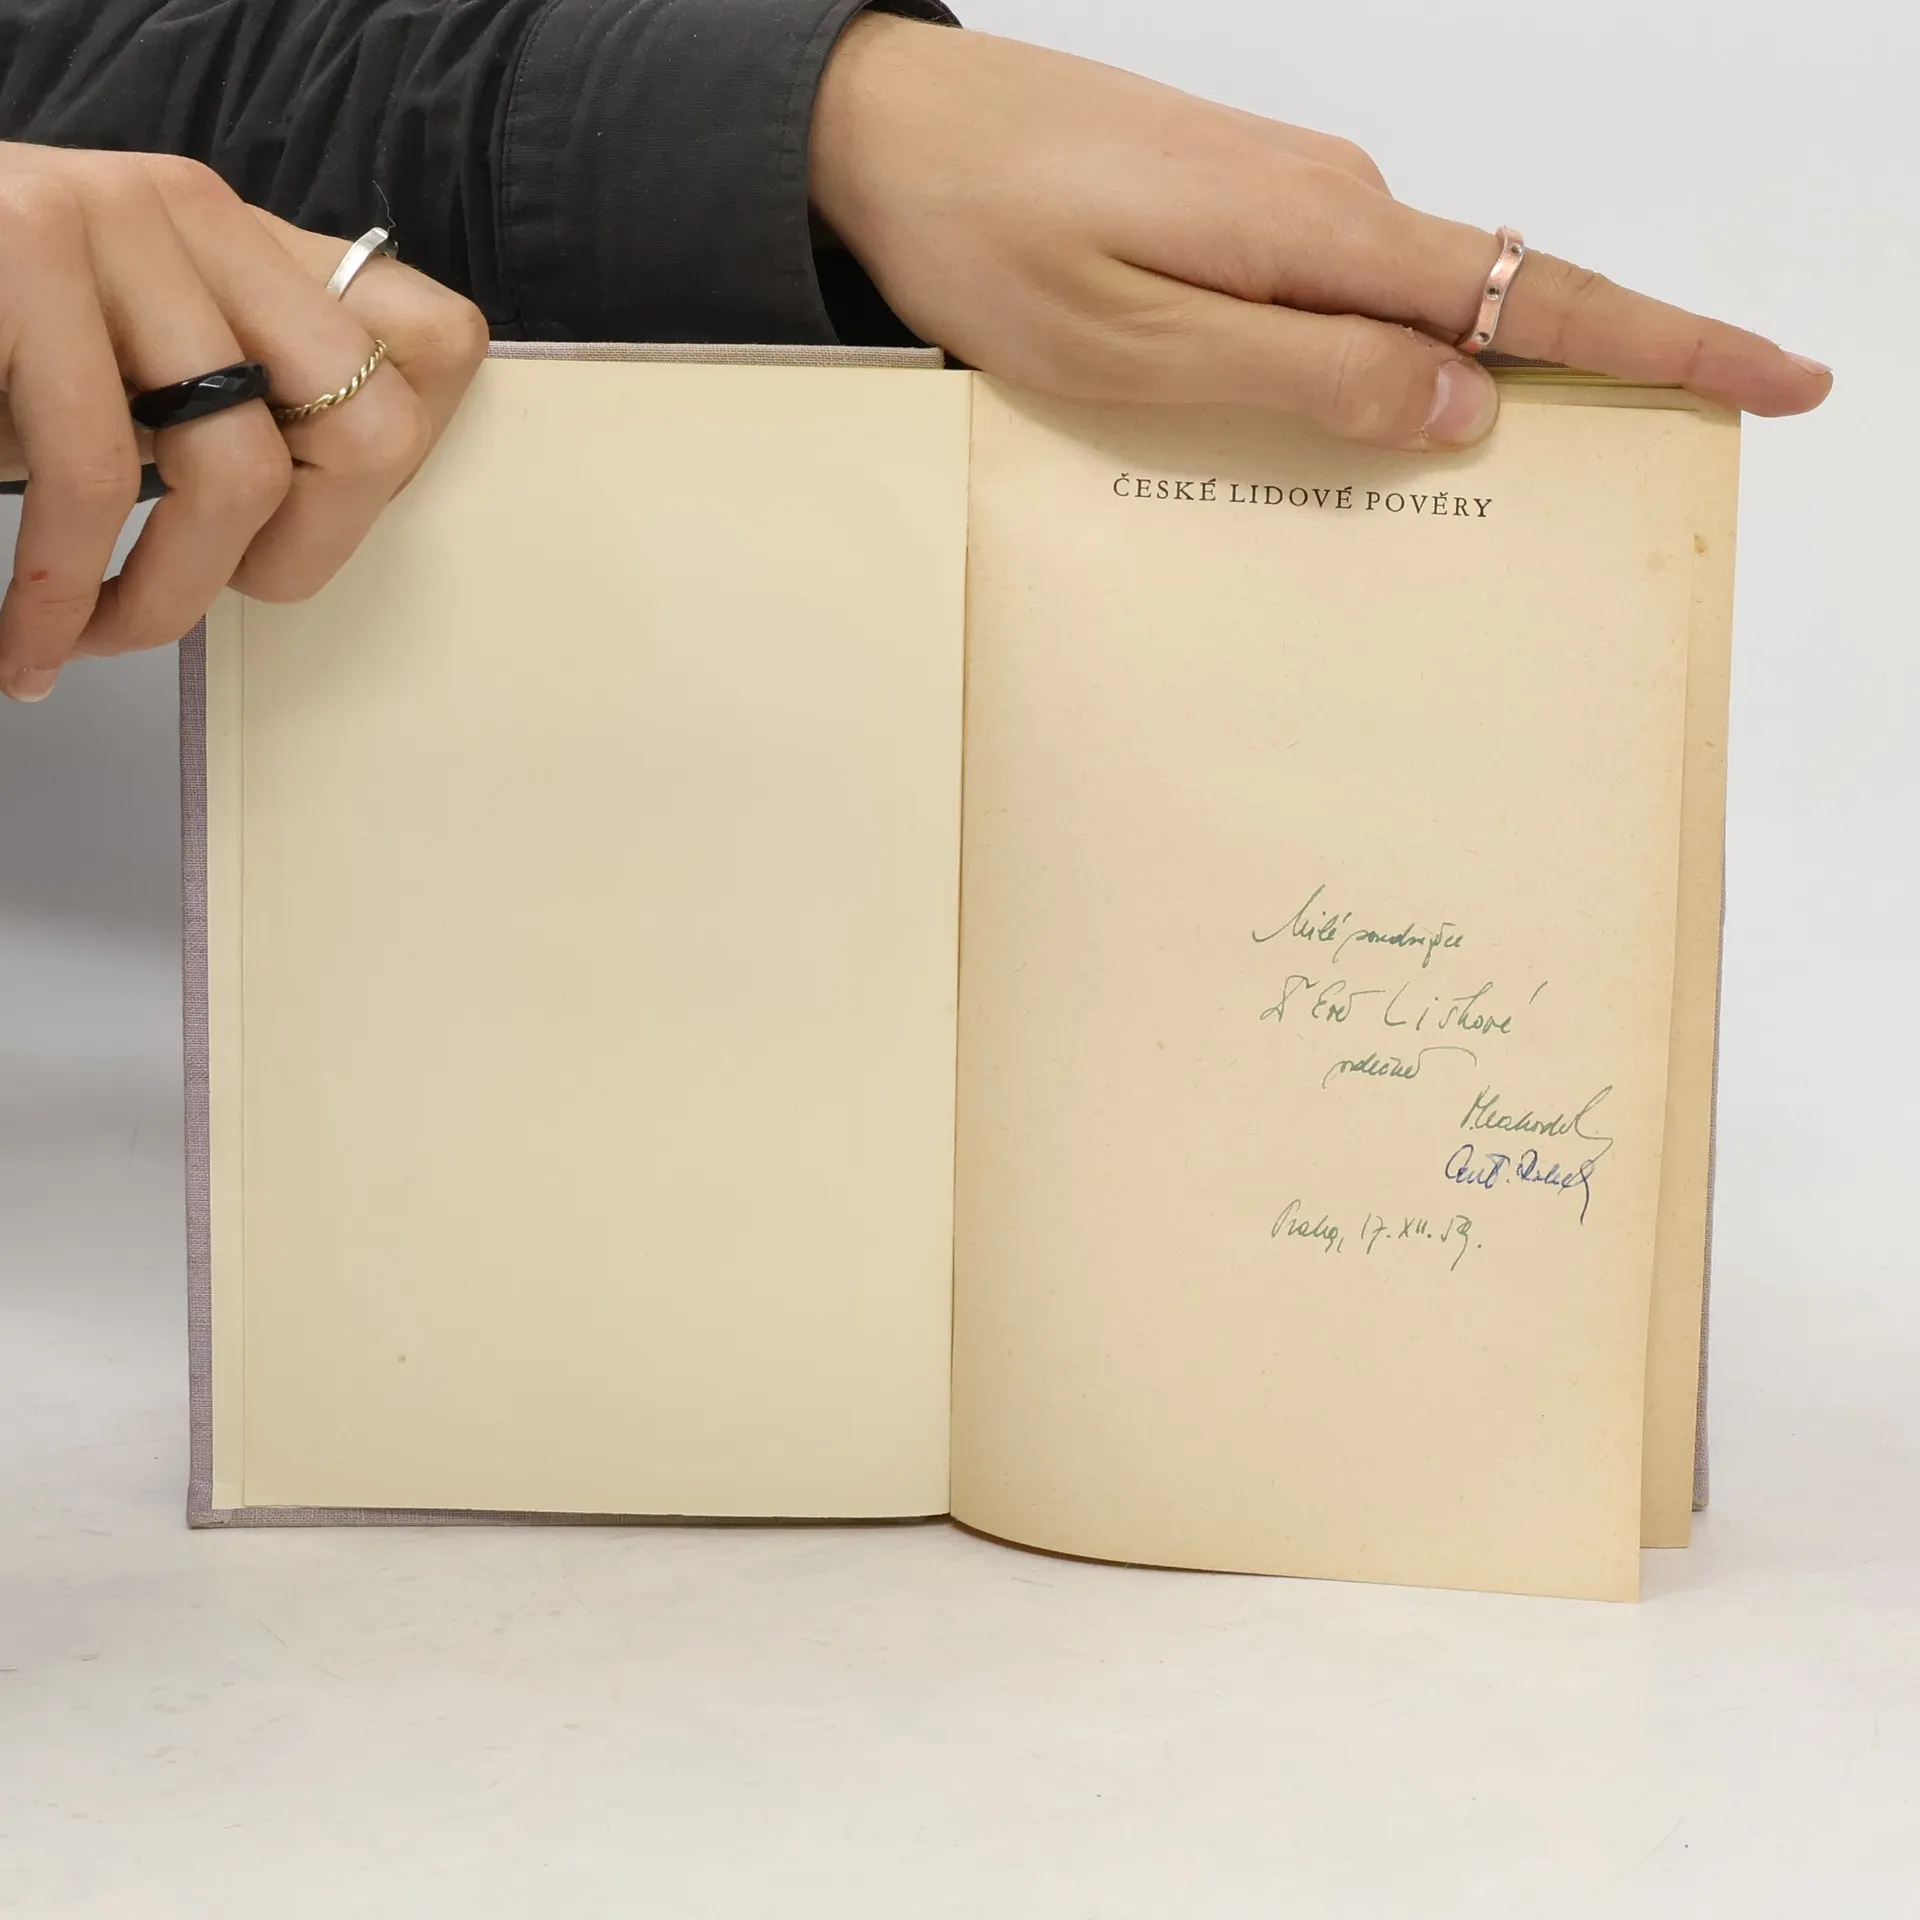 ČESKÉ LIDOVÉ POVĚRY
Milé soudružce
Dr Evě Liškové
srdečně
Ant. Robek
Praha, 17. XII. 59.